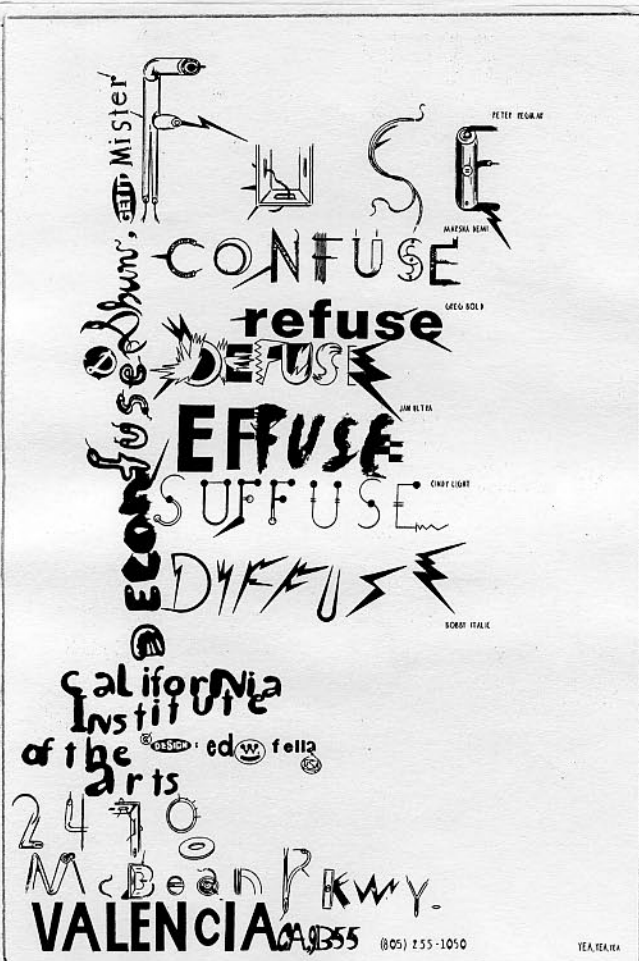 FUSE
PETER REGULAR
CONFUSE
MARSHA DEMI
refuse
GREG BOLD
DEFUSE
JAN ULTRA
EFFUSE
SUFFUSE
CINDY LIGHT
DIFFUSE
BOBBY ITALIC
DECONFUSE Shun, Mister
CalIforNia
InstitUte
of the
arts
© DESIGN: ed w. fella USA
24700
McBean Pkwy.
VALENCIA CA, 91355 (805) 255-1050
YEA, YEA, YEA